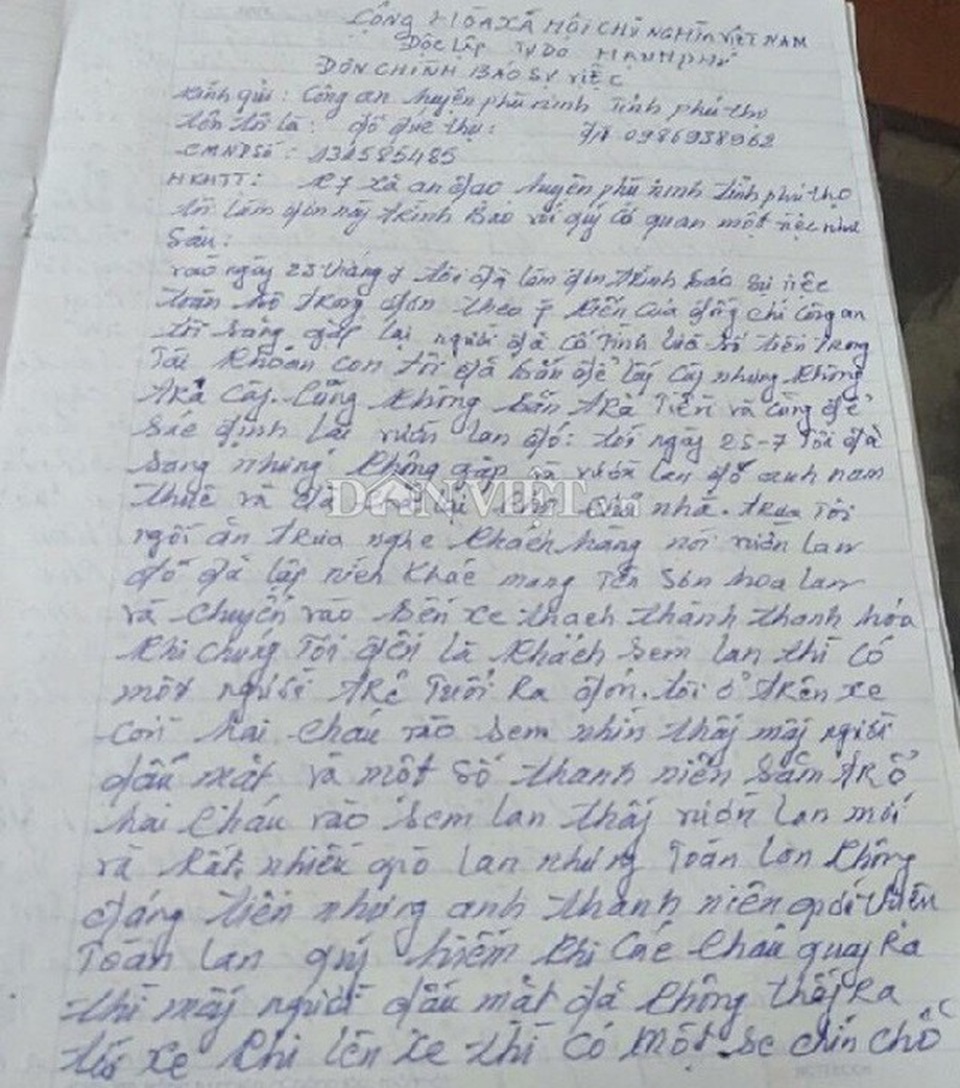 CỘNG HÒA XÃ HỘI CHỦ NGHĨA VIỆT NAM
Độc lập Tự DO HẠNH PHÚ
ĐƠN CHÌNH BÁO SỰ VIỆC
Kính gửi: Công an huyện phù ninh Tỉnh phú thọ
tôn tôi là: đỗ đức thụ: 0986938962
CMNDSố: 131585485
HKHTT: K7 xã an đạo huyện phù ninh tỉnh phú thọ
tôi làm đơn này trình báo với quý cơ quan một việc như
Sau:
vào ngày 23 tháng 7 tôi đã làm đơn trình báo sự việc
toàn bộ trong đơn theo ý kiến của đồng chí công an
tôi sang gặp lại người đã cố tình lừa số tiền trong
Tài khoản con tôi đã bán để lấy cây nhưng không
trả cây. Cũng không hoàn trả tiền và cũng để
sác định lại vườn lan đó: tới ngày 25-7 Tôi đã
sang nhưng không gặp và vườn lan đó anh nam
thuê và đã trả lại cho chủ nhà. trưa Tôi
ngồi ăn trưa nghe khách hàng nói vườn lan
đó đã lập nick khác mang Tên Sơn hoa lan
và chuyển vào bến xe thạch thành thanh hóa
khi chúng Tôi đến là khách sem lan thì có
một người trẻ tuổi ra đón. tôi ở trên xe
còn hai cháu vào sem nhìn thấy mấy người
dấu mặt và một số thanh niên săm trổ
hai cháu vào sem lan thấy vườn lan mới
và rất nhiều giò lan nhưng toàn lan không
đáng tiền nhưng anh thanh niên giới thiệu
Toàn lan quý hiếm khi các cháu quay ra
thì mấy người dấu mặt đã không thấy ra
tới xe khi lên xe thì có một se chín chỗ
DÂN VIỆT